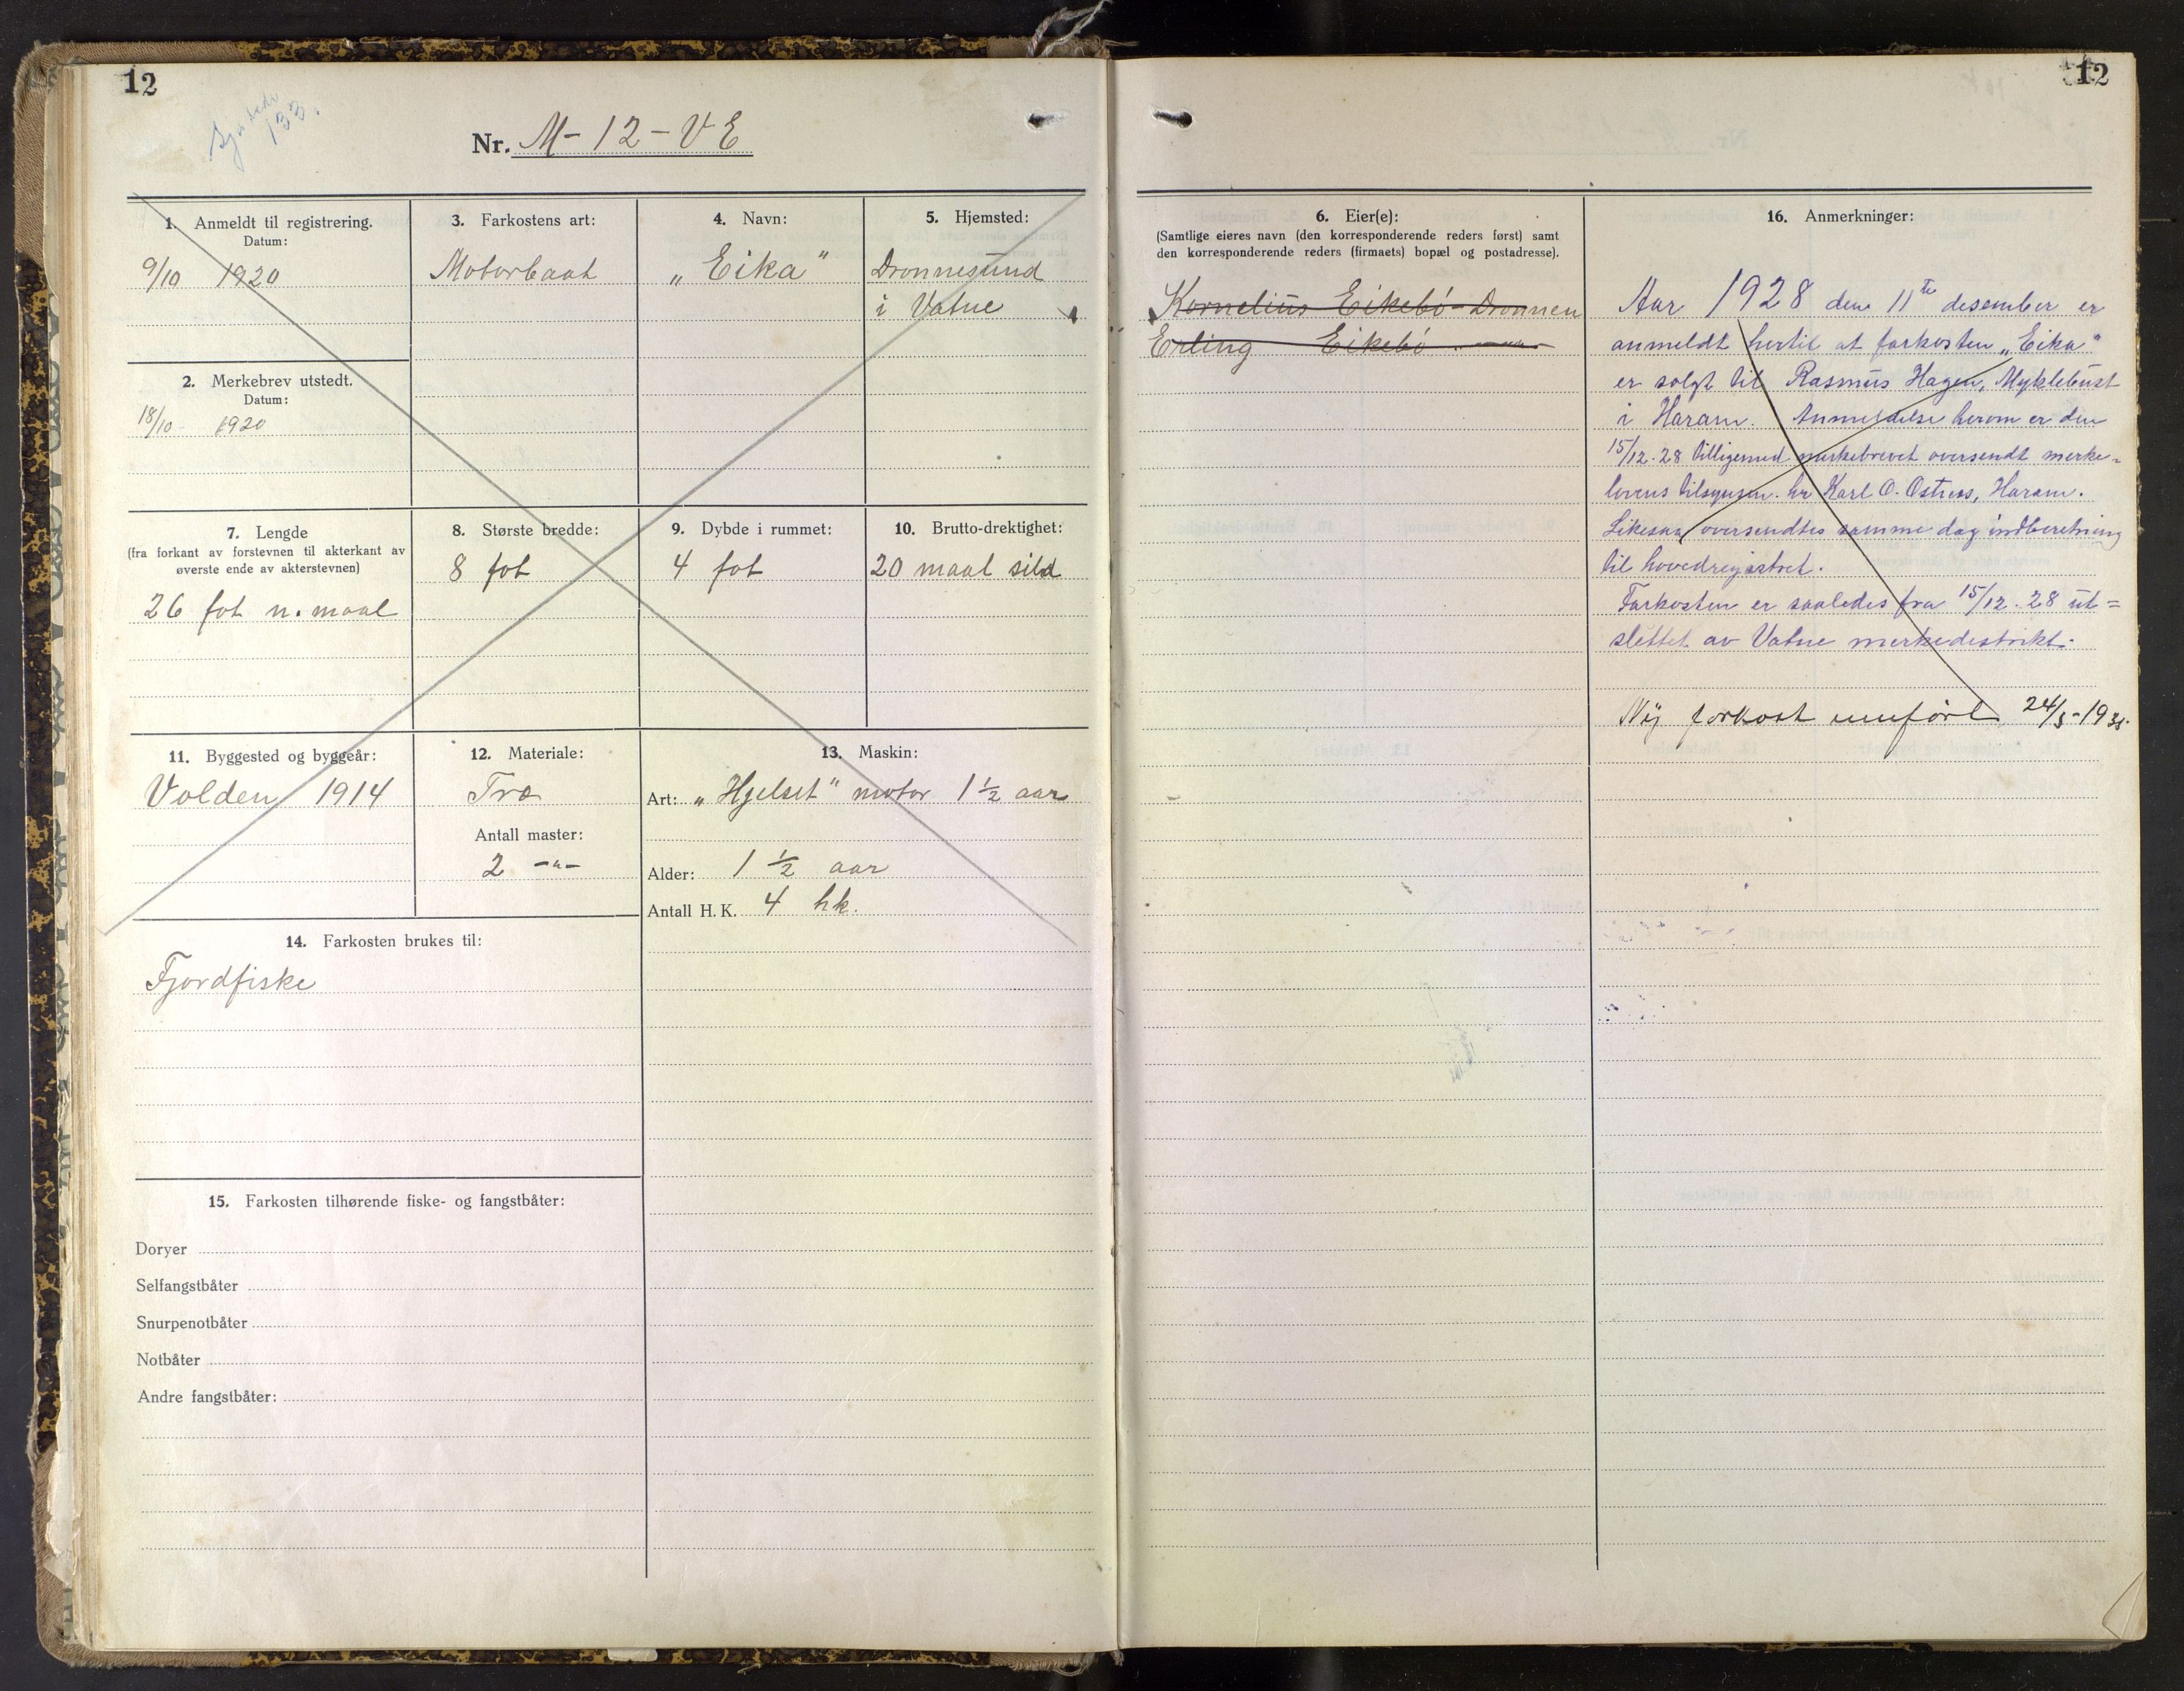 12
133.
Nr. M-12-VE
1. Anmeldt til registrering.
Datum:
9/10 1920
2. Merkebrev utstedt.
Datum:
18/10- 1920
3. Farkostens art:
Motorbaat
4. Navn:
„Eika"
5. Hjemsted:
Dronnesund
i Vatne
7. Lengde
(fra forkant av forstevnen til akterkant av
øverste ende av akterstevnen)
26 fot n. maal
8. Største bredde:
8 fot
9. Dybde i rummet:
4 fot
10. Brutto-drektighet:
20 maal sild
11. Byggested og byggeår:
Volden 1914
12. Materiale:
Træ
Antall master:
2 -"-
13. Maskin:
Art: „Hjelset" motor 1 ½ aar
Alder: 1 ½ aar
Antall H. K. 4 hk.
14. Farkosten brukes til:
Fjordfiske
15. Farkosten tilhørende fiske- og fangstbåter:
Doryer
Selfangstbåter
Snurpenotbåter
Notbåter
Andre fangstbåter:
12
6. Eier(e):
(Samtlige eieres navn (den korresponderende reders først) samt
den korresponderende reders (firmaets) bopæl og postadresse).
Kornelius Eikebø-Dronnen
Erling Eikebø -"-
16. Anmerkninger:
Aar 1928 den 11te desember er
anmeldt hertil at farkosten „Eika"
er solgt til Rasmus Hagen, Myklebust
i Haram. Anmeldelse herom er den
15/12.28 tilligemed merkebrevet oversendt merke-
lovens tilsynsm. hr Karl O. Ostnes, Haram.
Likesaa oversendtes samme dag indberetning
til hovedregistret.
Farkosten er saaledes fra 15/12.28 ut=
slettet av Vatne merkedistrikt.
Ny farkost innført 24/3-1935.